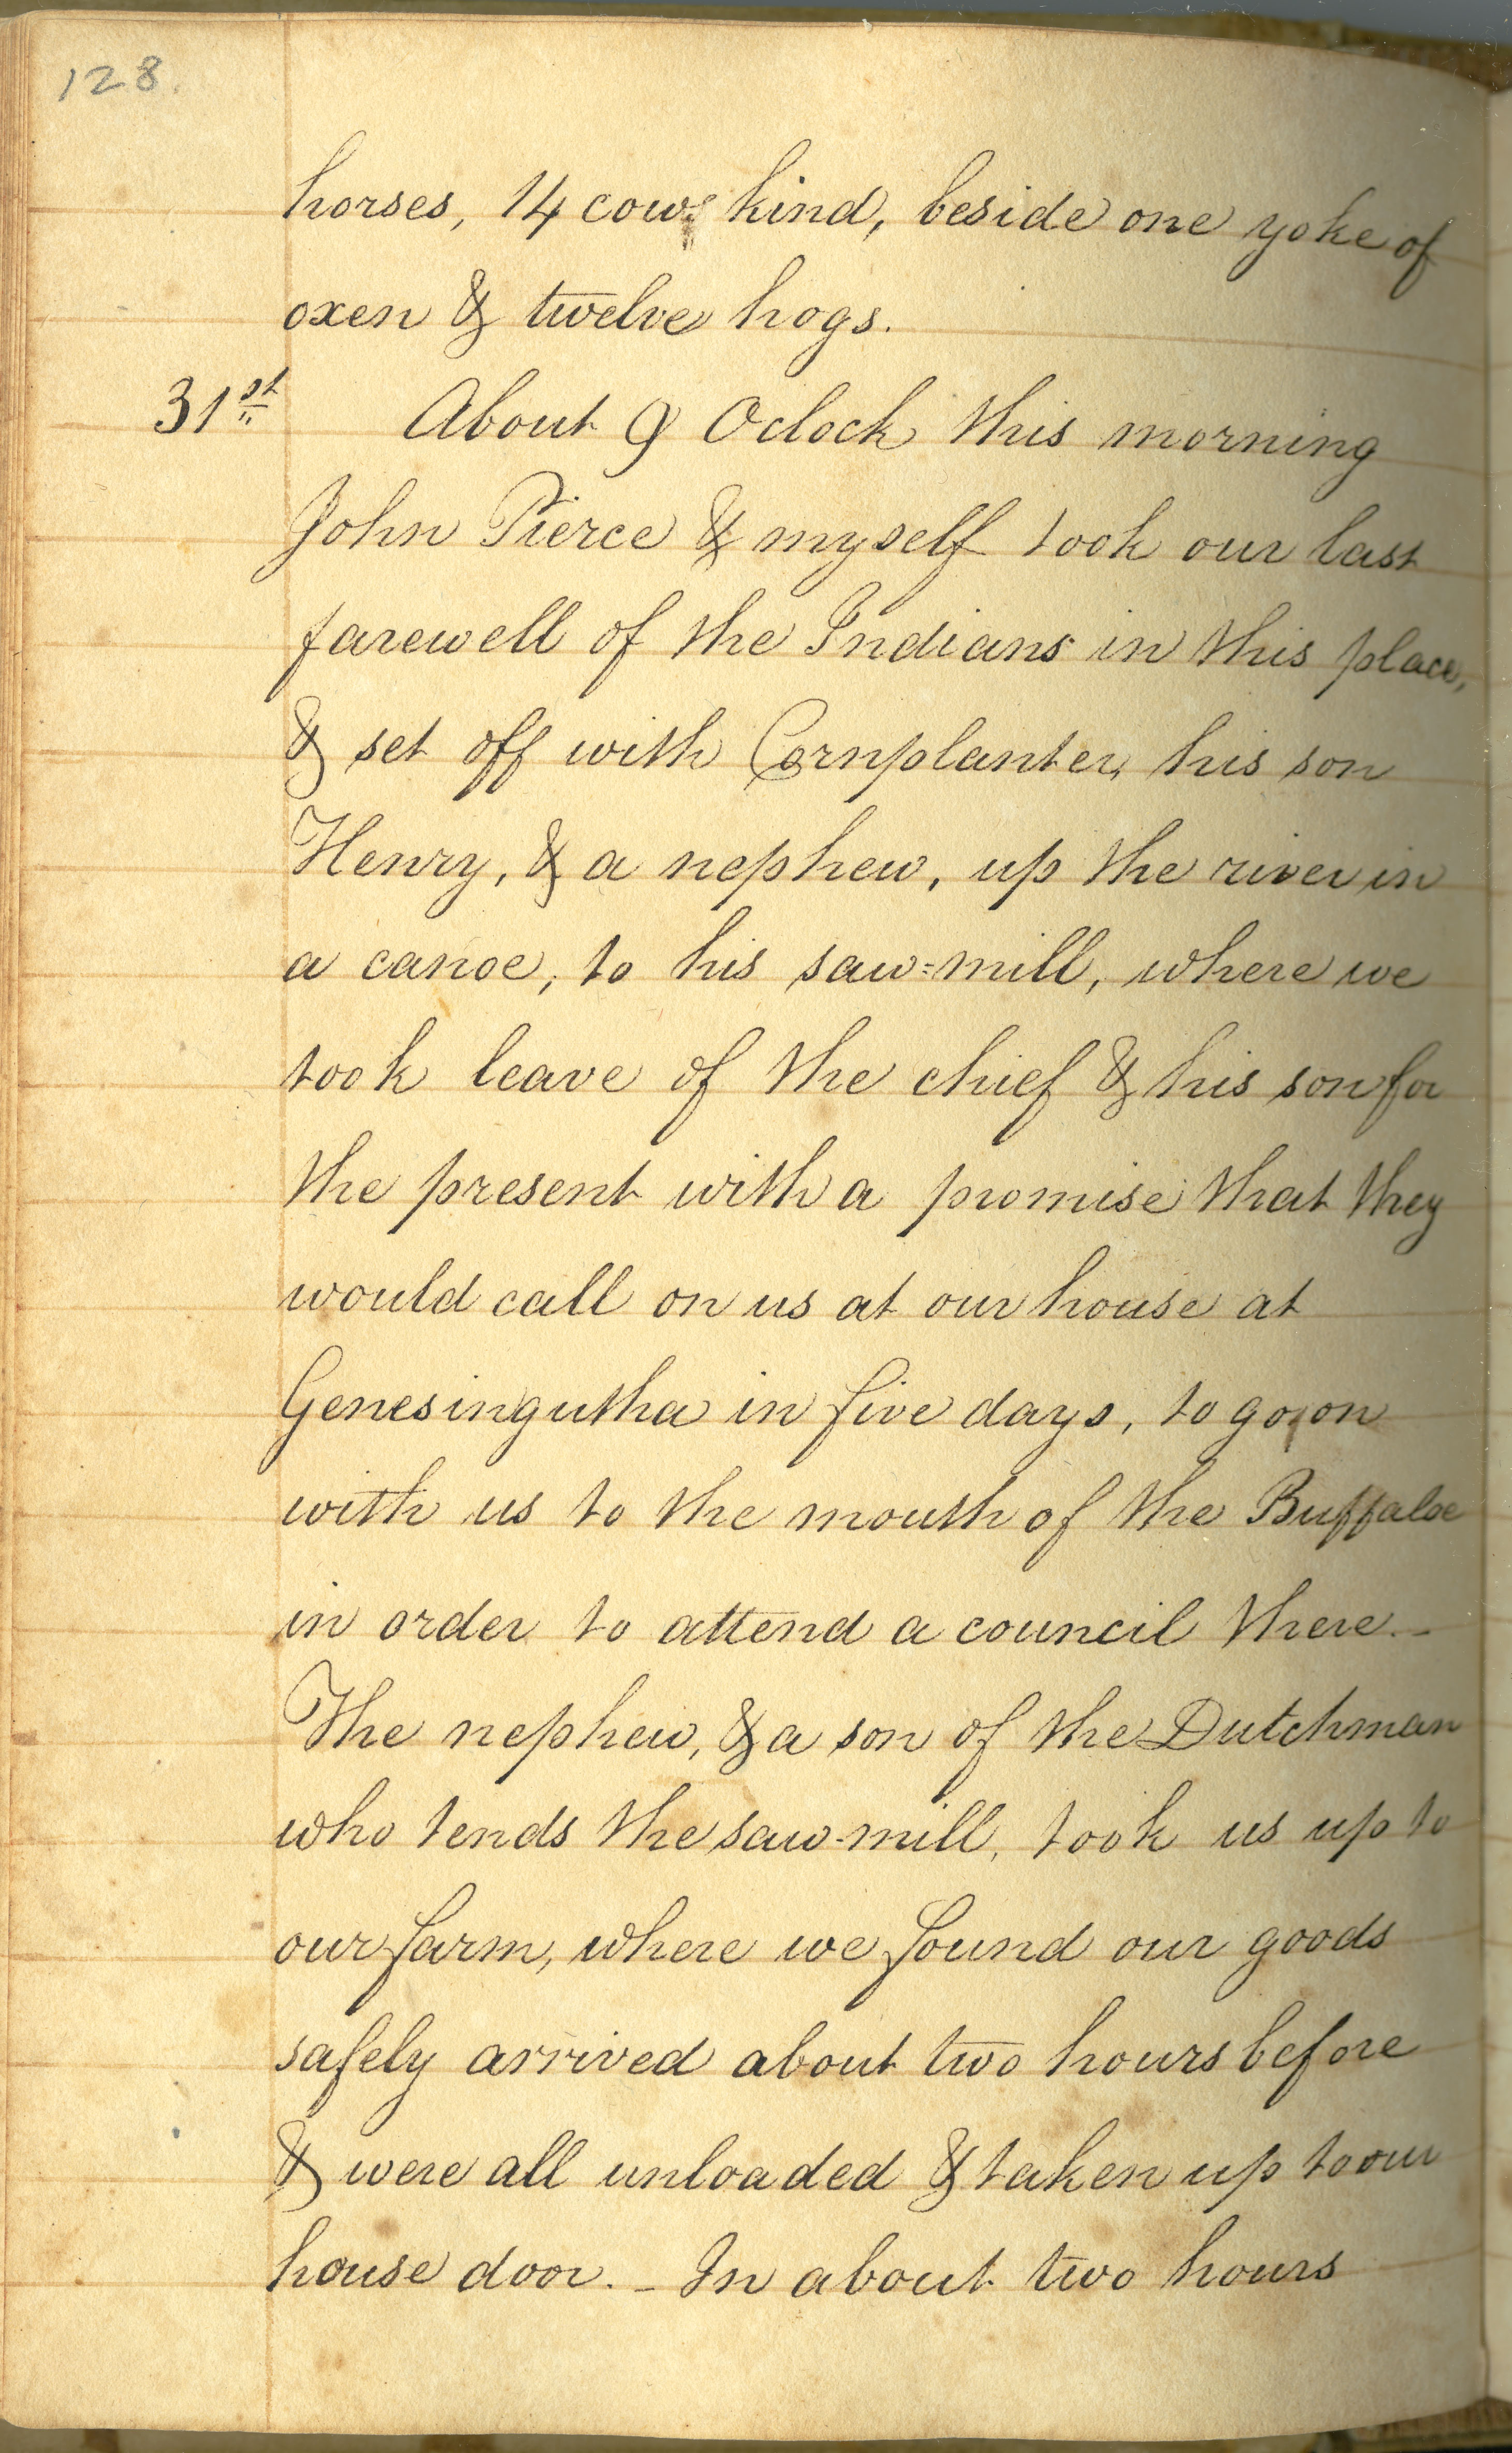 128.
horses, 14 cows kind, beside one yoke of
oxen & twelve hogs.
31st About 9 Oclock this morning
John Pierce & myself took our last
farewell of the Indians in this place,
& set off with Cornplanter, his son
Henry, & a nephew, up the river in
a canoe, to his saw=mill, where we
took leave of the chief & his son for
the present with a promise that they
would call on us at our house at
Genesingutha in five days, to go on
with us to the mouth of the Buffaloe
in order to attend a council there.-
The nephew, & a son of the Dutchman
who tends the saw-mill, took us up to
our farm, where we found our goods
safely arrived about two hours before
& were all unloaded & taken up to our
house door. - In about two hours